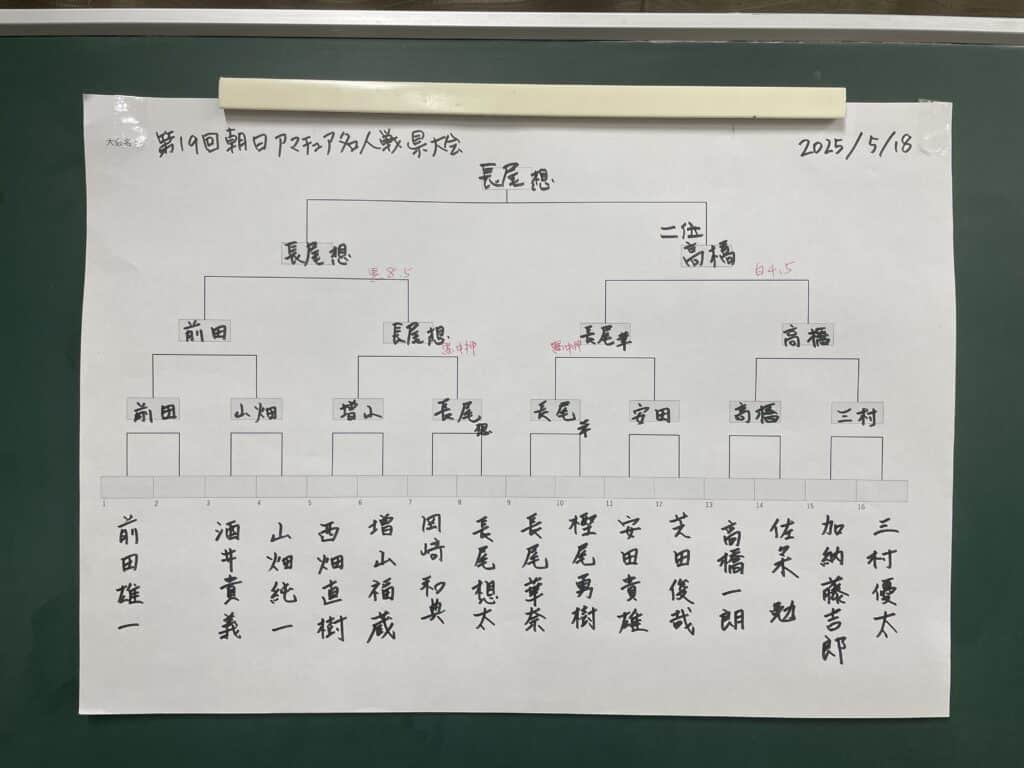 大会名
第19回朝日アマチュア名人戦県大会
2025/5/18
長尾想
長尾想
二位
高橋
黒8.5
白4.5
前田
長尾想
長尾華
高橋
黒中押
黒中押
前田
山畑
増山
長尾想
長尾華
安田
高橋
三村
1 2 3 4 5 6 7 8 9 10 11 12 13 14 15 16
前田雄一
酒井貴義
山畑純一
西畑直樹
増山福蔵
岡崎和典
長尾想太
長尾華奈
樫尾勇樹
安田貴雄
芝田俊哉
高橋一朗
佐采 勉
加納藤吉郎
三村優太